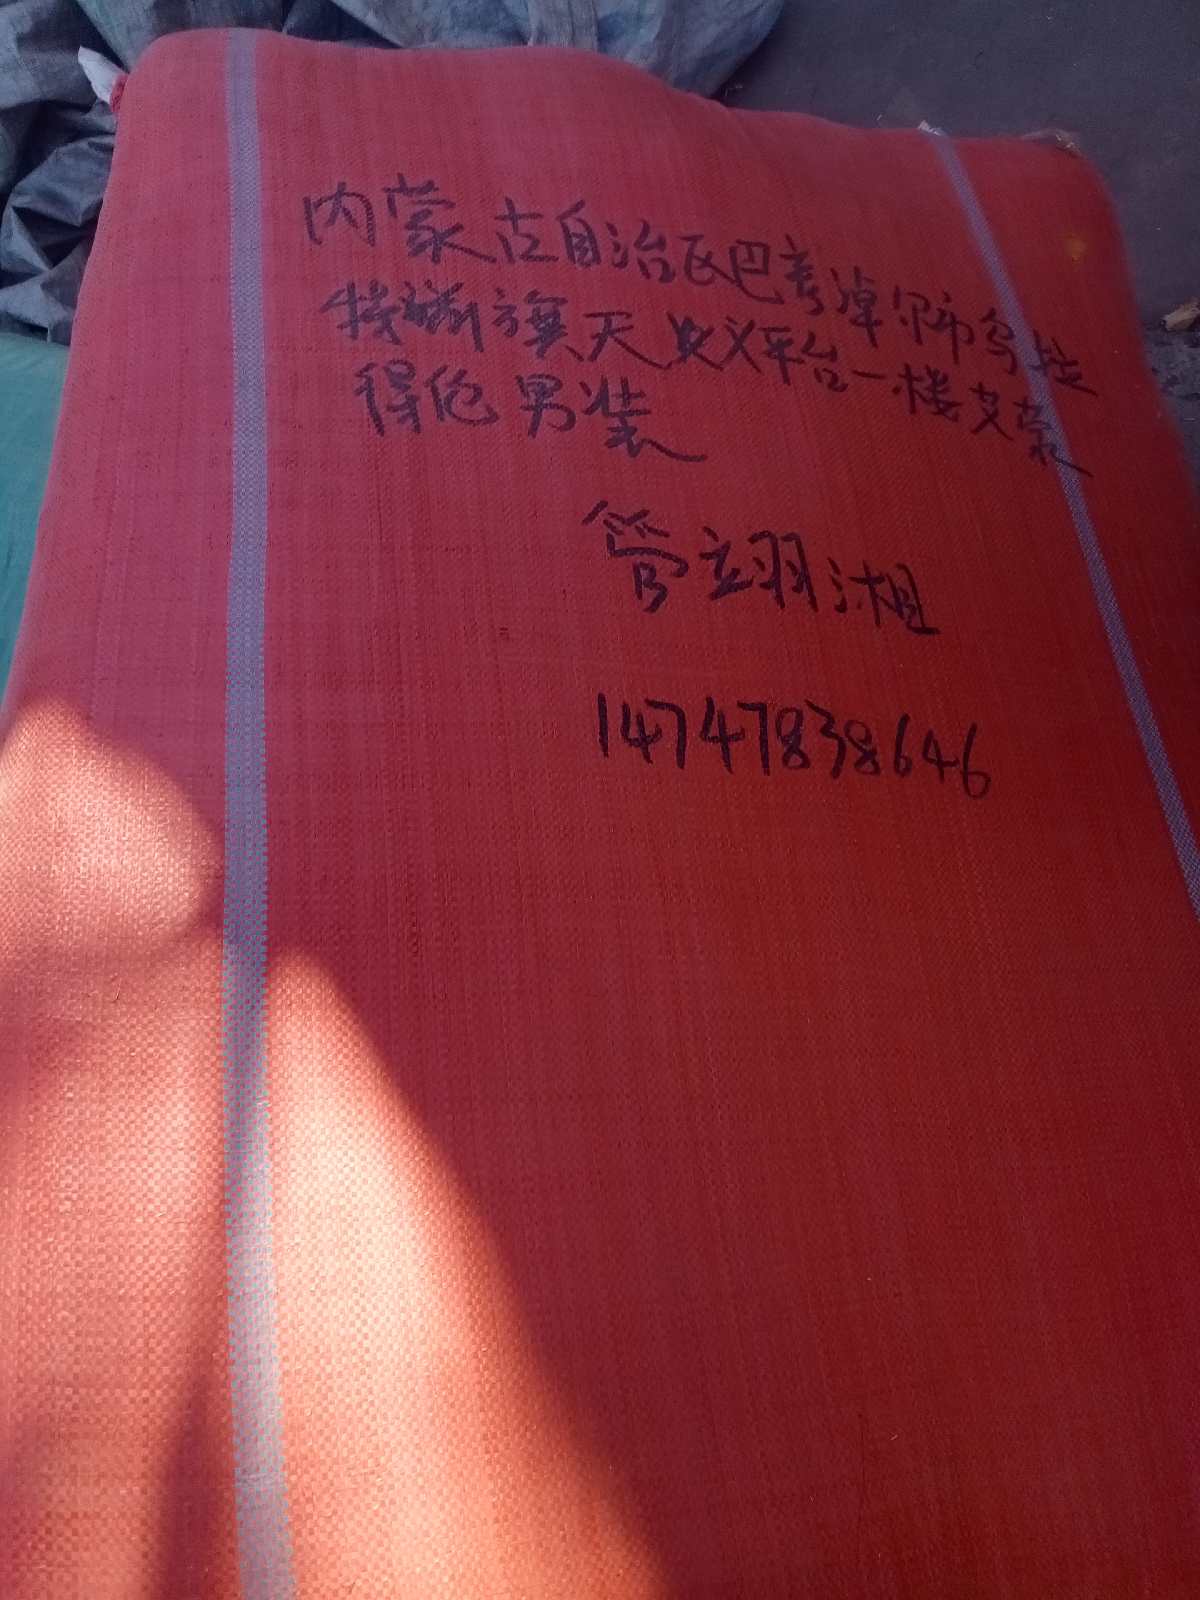 内蒙古自治区巴彦淖尔市乌拉
特前旗天义平台一楼艾蒙
得伦男装
管立翔湘
14747838646